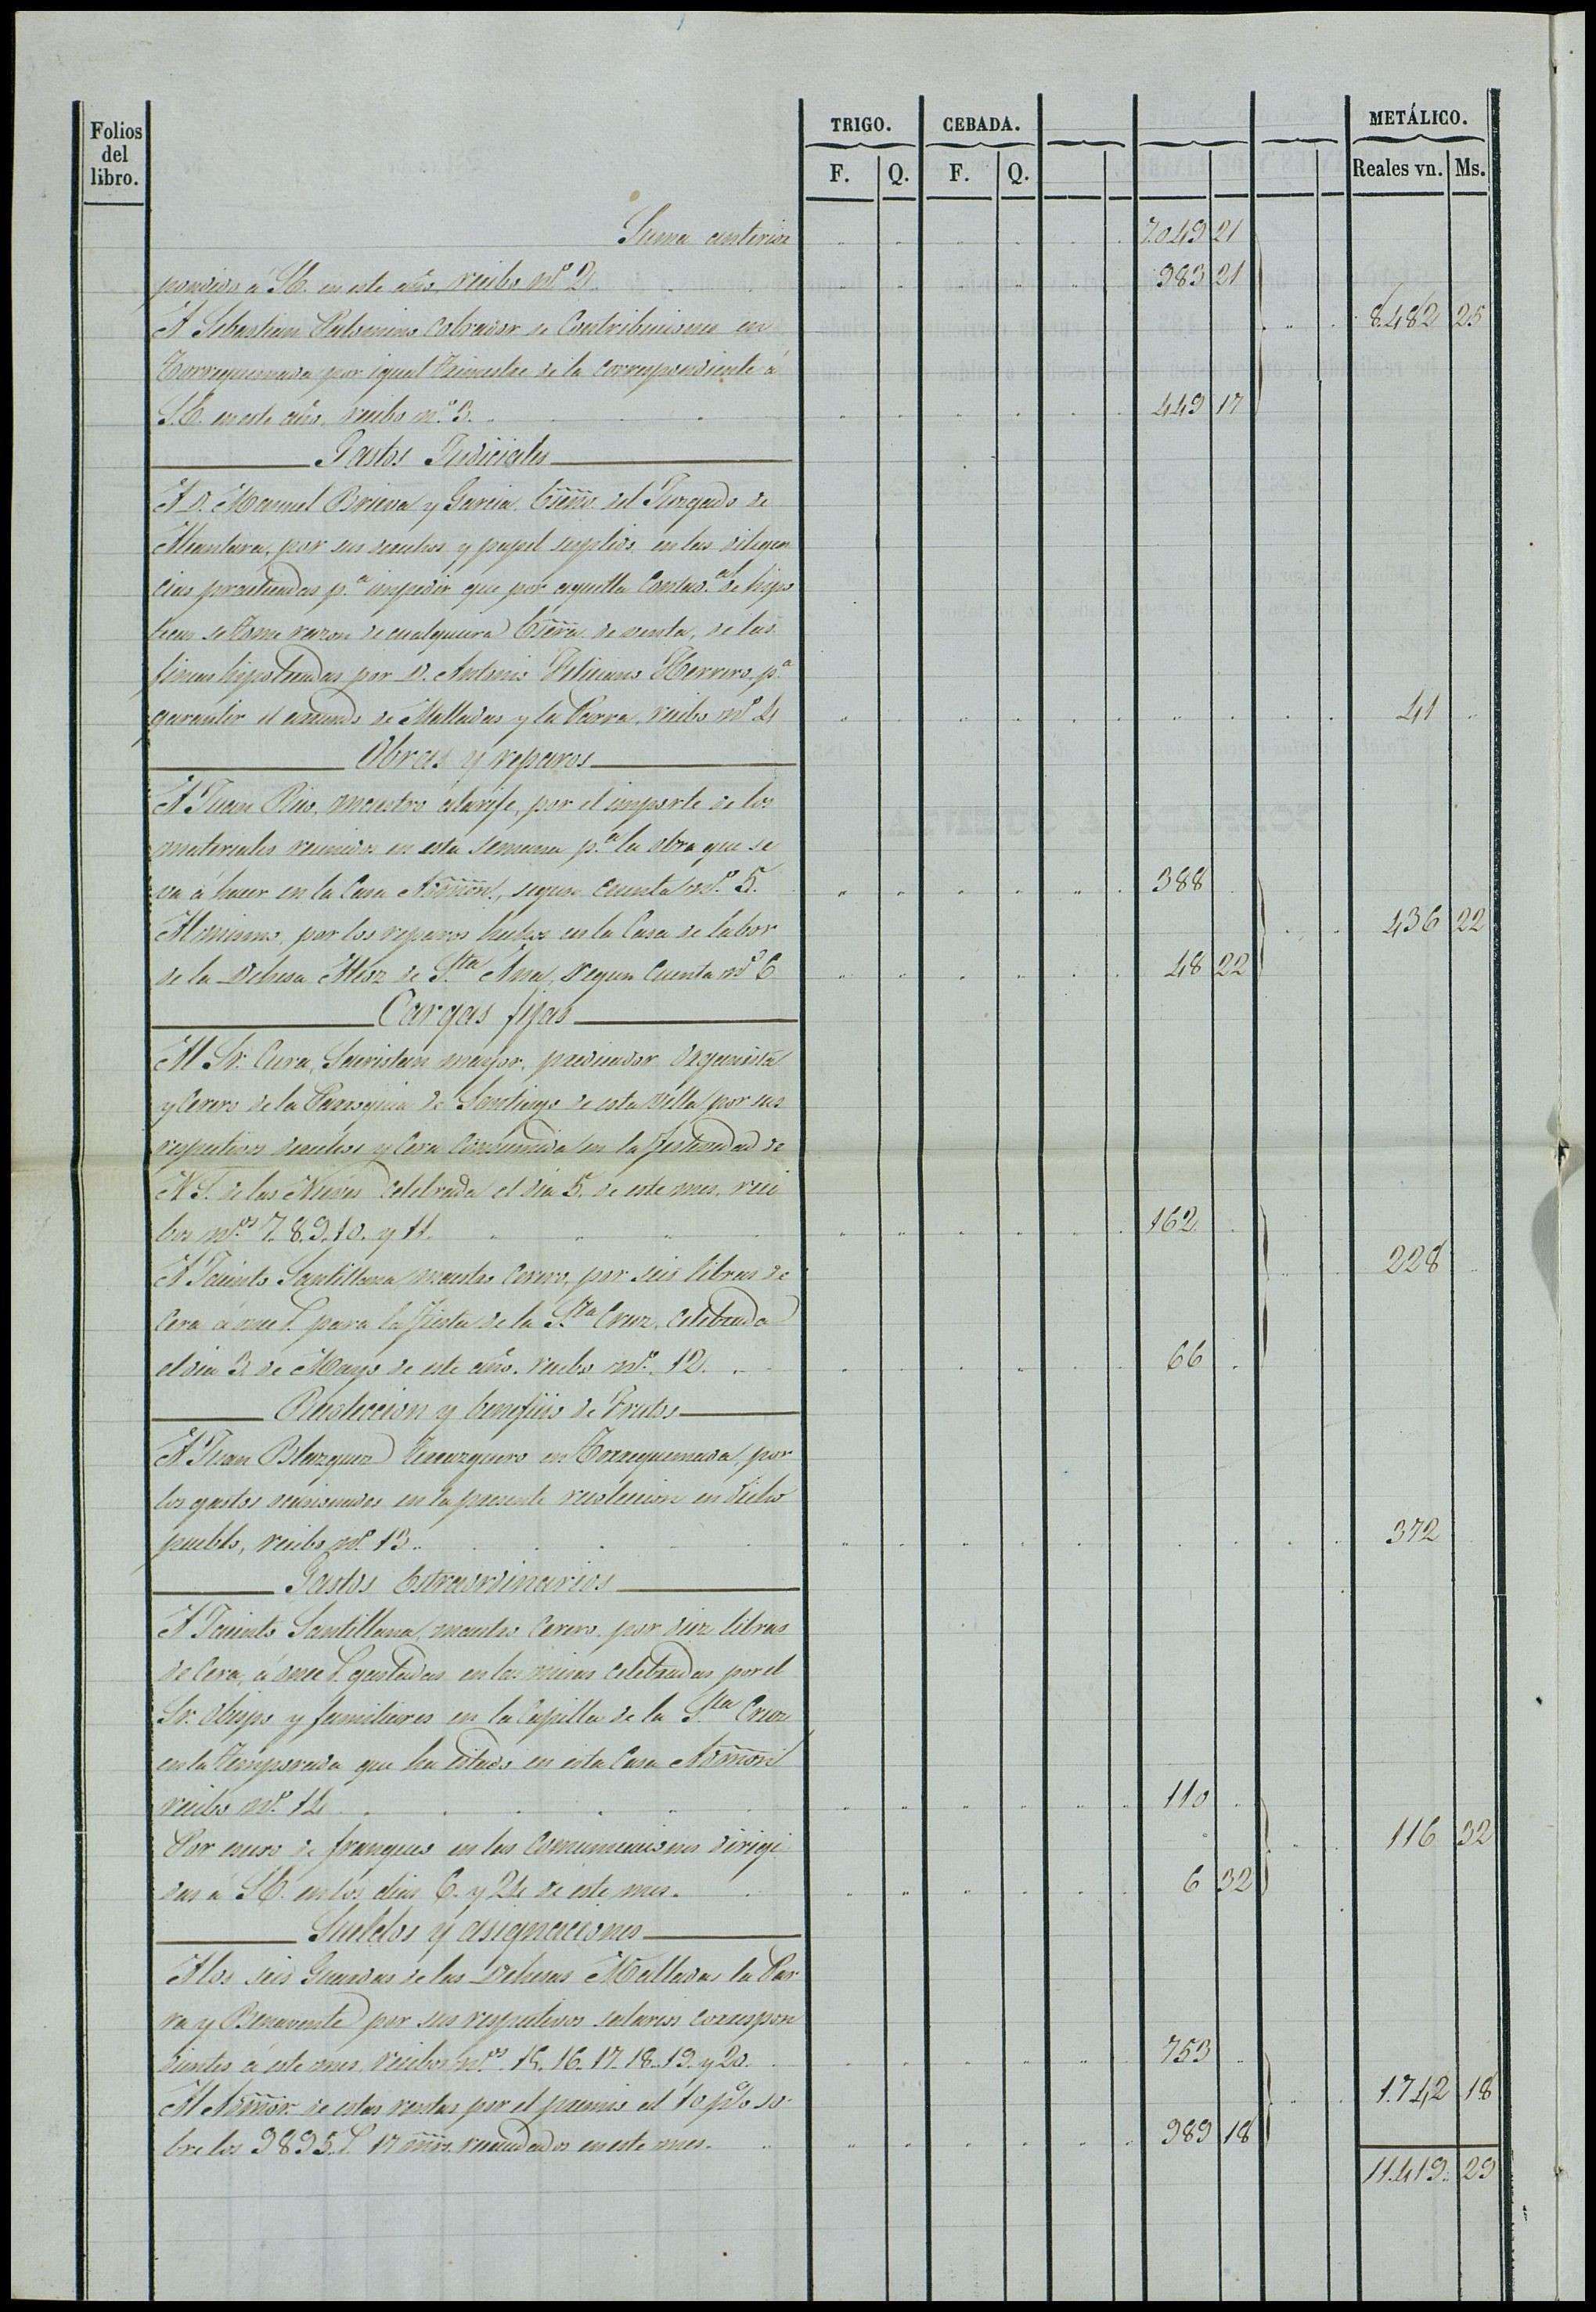 Folios del libro.
TRIGO. CEBADA. METÁLICO.
F. Q. F. Q. Reales vn. Ms.
Suma anterior 7.049 21
pondido á S.E. en este año, recibo n.º 2. 983 21
A Sebastian Palomino Cobrador de Contribuciones en 8.482 25
Torrequemada por igual trimestre de la correspondiente á
S.E. en este año, recibo n.º 3. 449 17
Gastos Judiciales
A D. Manuel Brieva y Garcia, Escño. del Juzgado de
Alcantara, por sus derechos y papel suplido en las diligen
cias practicadas p.ª impedir que por aquella Contad.ª de hipo
tecas se tome razon de cualquiera Escra. de venta, de las
fincas hipotecadas por D. Antonio Feliciano Herrero p.ª
garantir el arriendo de Malladas y la Parra, recibo n.º 4 41
Obras y reparos
A Juan Rino, maestro alarife, por el importe de los
materiales reunidos en esta semana p.ª la obra que se
va á hacer en la Casa Admon., segun cuenta n.º 5. 388
Al mismo, por los reparos hechos en la Casa de labor 436 22
de la Dehesa de S.ta Ana, segun cuenta n.º 6 48 22
Cargas fijas
Al Sr. Cura, Sacristan mayor, predicador, Organista
y Cerero de la Parroquia de Santiago de esta Villa por sus
respectivos derechos y Cera consumida en la festividad de
N. S. de las Nieves celebrada el dia 5. de este mes, reci
bos n.os 7. 8. 9. 10. y 11. 162
A Jacinto Santillana maestro Cerero, por seis libras de 228
Cera á once r. para la fiesta de la S.ta Cruz, celebrada
el dia 3. de Mayo de este año, recibo n.º 12. 66
Recoleccion y beneficio de Frutos
A Juan Blazquez Tercerquero en Torrequemada, por
los gastos ocasionados en la presente recoleccion en dicho
pueblo, recibo n.º 13. 372
Gastos Estraordinarios
A Jacinto Santillana, maestro Cerero, por diez libras
de Cera, á once r. gastadas en las misas celebradas por el
Sr. Obispo y familiares en la Capilla de la S.ta Cruz
en la temporada que ha estado en esta Casa Admon.
recibo n.º 14 110
Por de franqueo en las Comunicaciones dirigi 116 32
das á S.E. en los dias 6. y 24 de este mes. 6 32
Sueldos y asignaciones
A los seis Guardas de las Dehesas Malladas la Par
ra y Benavente por sus respectivos salarios correspon
dientes á este mes, recibos n.os 15. 16. 17. 18. 19. y 20. 753
Al Admor. de estas rentas por el premio al 10 p% so 1.742 18
bre los 9895 r. 17 mrs. recaudados en este mes. 989 18
11.419 29